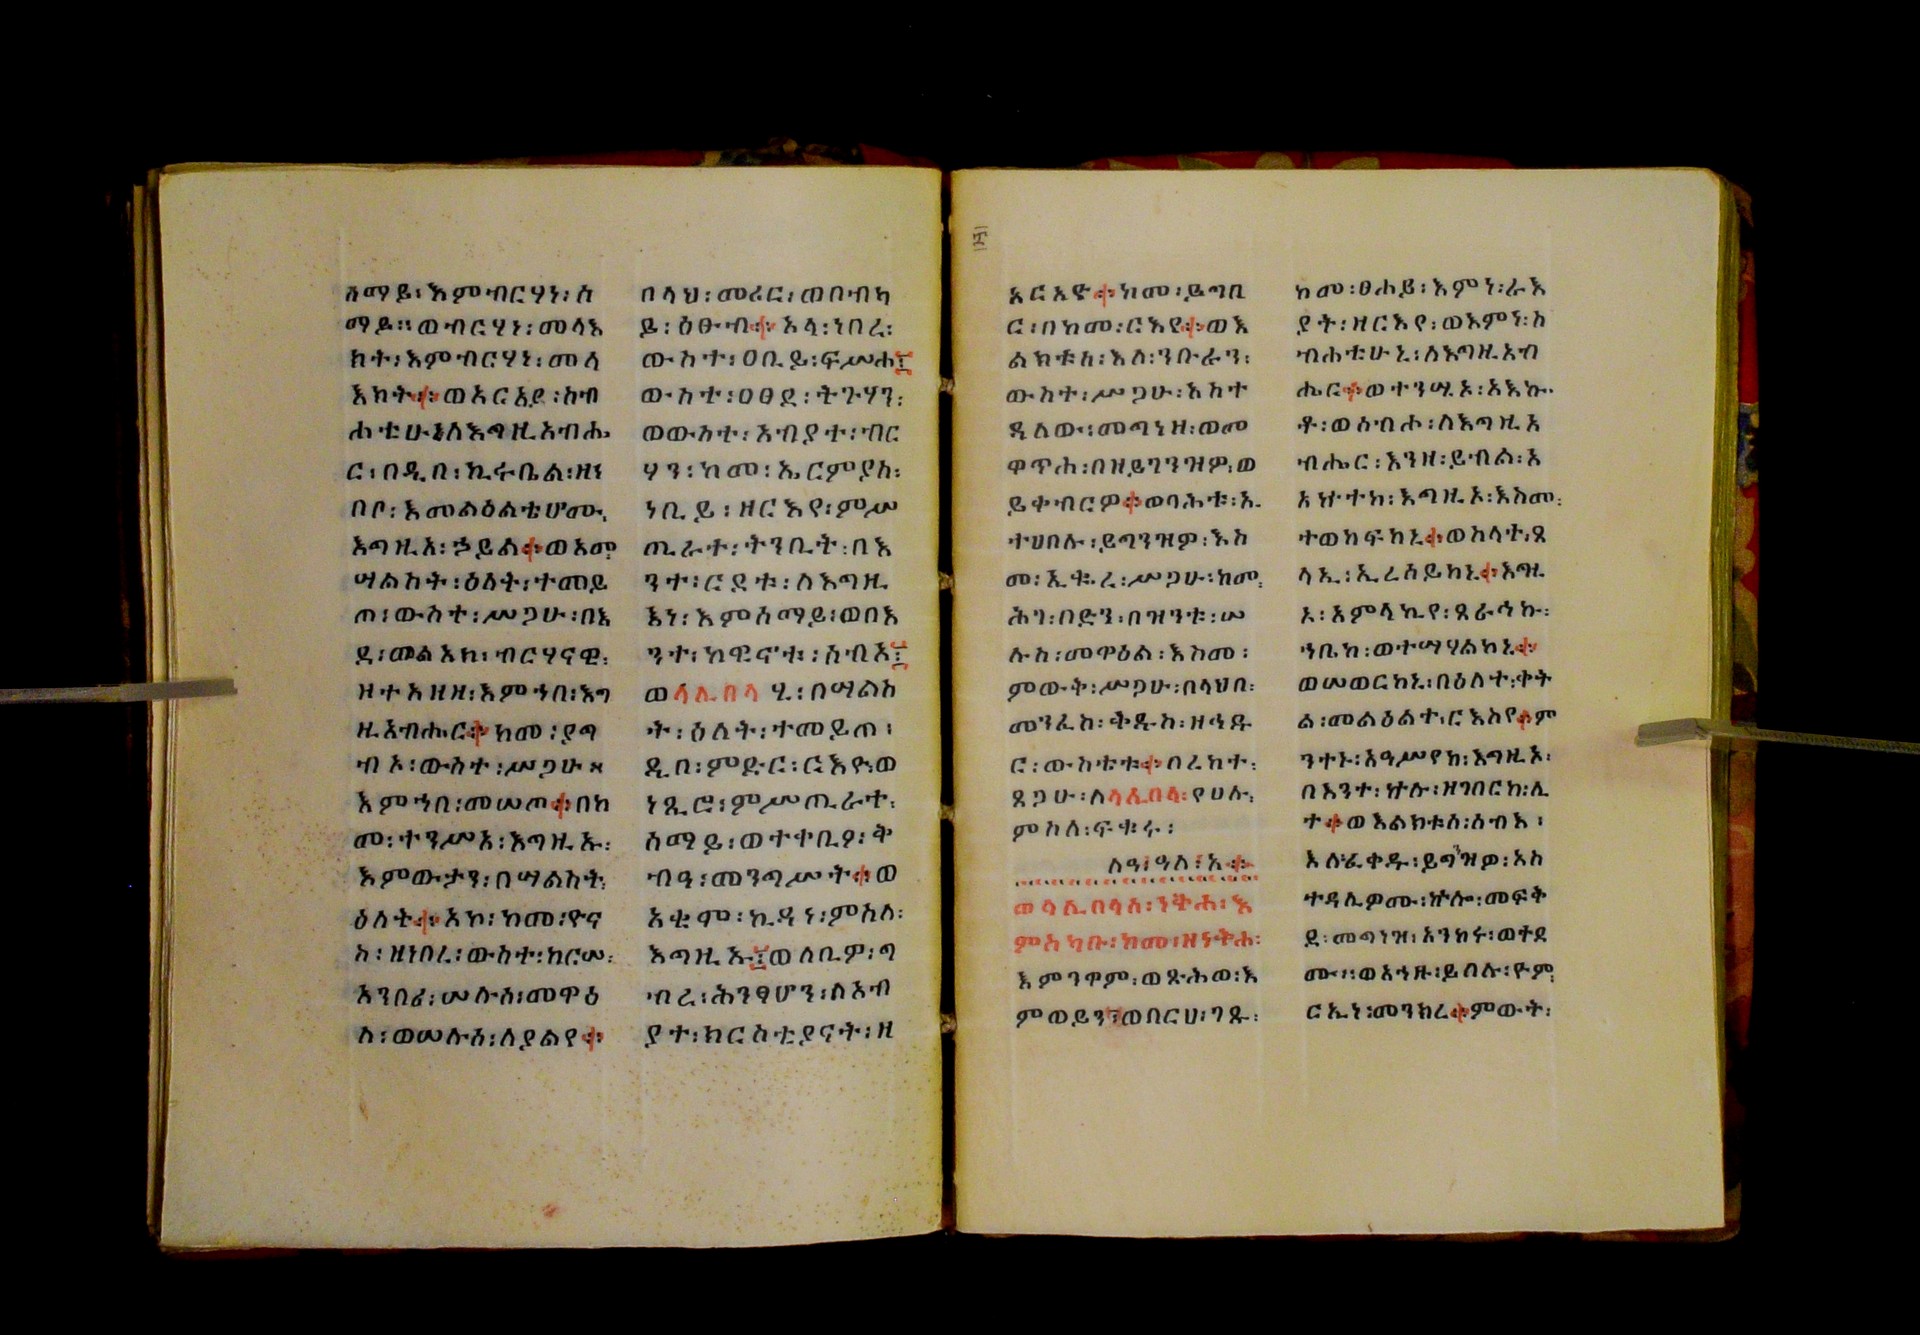 ሰማይ፡ እምብርሃነ፡ ስ
ማይ። ወብርሃነ፡ መላእ
ክት፡ እምብርሃነ፡ መላ
እክት። ወአርአዮ፡ ስብ
ሐቲሁ፡ ለእግዚአብሔ
ር፡ በዲበ፡ ኪሩቤል፡ ዘነ
በቦ፡ እመልዕልቴሆሙ፡
እግዚአ፡ ኃይል። ወእም
ሣልስት፡ ዕለት፡ ተመይ
ጠ፡ ውስተ፡ ሥጋሁ፡ በእ
ደ፡ መልአከ፡ ብርሃናዊ፡
ዘተአዘዘ፡ እምኀበ፡ እግ
ዚአብሔር። ከመ፡ ያግ
ብኦ፡ ውስተ፡ ሥጋሁ
እምኀበ፡ መሠጦ። በከ
መ፡ ተንሥአ፡ እግዚኡ፡
እምውታን፡ በሣልስት፡
ዕለት። አኮ፡ ከመ፡ ዮና
ስ፡ ዘነበረ፡ ውስተ፡ ከርሠ፡
አንበሪ፡ ሠሉስ፡ መዋዕ
ለ፡ ወሠሉስ፡ ለያልየ።
በላህ፡ መሪር፡ ወበብካ
ይ፡ ዕፁብ። አላ፡ ነበረ፡
ውስተ፡ ዐቢይ፡ ፍሥሐ፤
ውስተ፡ ዐፀደ፡ ትጉሃን፡
ወውስተ፡ አብያተ፡ ብር
ሃን፡ ከመ፡ ኤርምያስ፡
ነቢይ፡ ዘርእየ፡ ምሥ
ጢራተ፡ ትንቢት፡ በእ
ንተ፡ ርደቱ፡ ለእግዚ
እነ፡ እምሰማይ፡ ወበእ
ንተ፡ ከዊኖቱ፡ ሰብአ፤
ወላሊበላ ሂ፡ በሣልስ
ት፡ ዕለት፡ ተመይጠ፡
ዲበ፡ ምድር፡ ርእዮ፡ ወ
ነጺሮ፡ ምሥጢራተ፡
ሰማይ፡ ወተቀቢዖ፡ ቅ
ብዓ፡ መንግሥት። ወ
አቂሞ፡ ኪዳነ፡ ምስለ፡
እግዚኡ፤ ወለቢዎ፡ ግ
ብረ፡ ሕንፃሆን፡ ለአብ
ያተ፡ ክርስቲያናት፡ ዘ
አርአዮ። ከመ፡ ይግበ
ር፡ በከመ፡ ርእየ። ወእ
ልክቱሰ፡ እለ፡ ንቡራን፡
ውስተ፡ ሥጋሁ፡ አስተ
ዳለው፡ መግነዘ፡ ወመ
ዋጥሐ፡ በዘይገንዝዎ፡ ወ
ይቀብርዎ። ወባሕቱ፡ ኢ
ተሀበሉ፡ ይግንዝዎ፡ እስ
መ፡ ኢቈረ፡ ሥጋሁ፡ ከመ፡
ሕገ፡ በድን፡ በዝንቱ፡ ሠ
ሉስ፡ መዋዕል፡ እስመ፡
ምውት፡ ሥጋሁ፡ በላህበ፡
መንፈስ፡ ቅዱስ፡ ዘኀዱ
ር፡ ውስቴቱ። በረከተ፡
ጸጋሁ፡ ለላሊበላ፡ የሀሉ፡
ምስለ፡ ፍቁሩ፡
ለዓ፡ ዓለ፡ አ።
ወላሊበላሰ፡ ንቅሐ፡ እ
ምስካቡ፡ ከመ፡ ዘነቅሐ፡
እምንዋም፡ ወጸሕወ፡ እ
ምወይን፤ ወበርሀ፡ ገጹ፡
ከመ፡ ፀሐይ፡ እምነ፡ ራእ
ያት፡ ዘርእየ፡ ወእምነ፡ ስ
ብሐቲሁ ኒ፡ ለእግዚአብ
ሔር። ወተንሢኦ፡ አእኰ
ቶ፡ ወሰብሖ፡ ለእግዚአ
ብሔር፡ እንዘ፡ ይብል፡ አ
አኵተከ፡ እግዚኦ፡ እስመ፡
ተወከፍከኒ። ወከላት፡ ጸ
ላኢ፡ ኢረሰይከኒ። እግዚ
ኦ፡ አምላኪየ፡ ጸራኅኩ፡
ኀቤከ፡ ወተሣሃልከኒ።
ወሠወርከኒ፡ በዕለተ፡ ቀት
ል፡ መልዕልተ፡ ርእስየ። ም
ንተኑ፡ አዓሥየከ፡ እግዚኦ፡
በእንተ፡ ኵሉ፡ ዘገበርከ፡ ሊ
ተ። ወእልክቱሰ፡ ሰብእ፡
እለ፡ ፈቀዱ፡ ይግንዝዎ፡ አስ
ተዳሊዎሙ፡ ኵሎ፡ መፍቅ
ደ፡ መግነዝ፡ አንከሩ፡ ወተደ
ሙ። ወአኀዙ፡ ይበሉ፡ ዮም፡
ርኢነ፡ መንክረ። ምውት፡